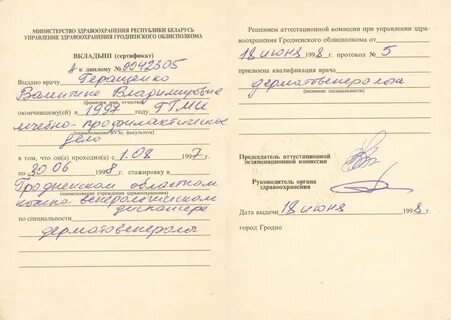 МИНИСТЕРСТВО ЗДРАВООХРАНЕНИЯ РЕСПУБЛИКИ БЕЛАРУСЬ
УПРАВЛЕНИЕ ЗДРАВООХРАНЕНИЯ ГРОДНЕНСКОГО ОБЛИСПОЛКОМА
ВКЛАДЫШ (сертификат)
к диплому № 0042305
Выдано врачу Геращенко
Валентине Владимировне
(фамилия, имя, отчество)
окончившему(ей) в 1997 году ГГМИ
лечебно-профилактическое
(наименование ВУЗа, факультета)
дело
в том, что он(а) проходил(а) с 1.08 1997 г.
по 30.06 1998 г. стажировку в
Гродненском областном
(наименование учреждения здравоохранения)
кожно-венерологическом
диспансере
по специальности
дерматовенеролог
Решением аттестационной комиссии при управлении здра-
воохранения Гродненского облисполкома от
18 июня 1998 г. протокол № 5
присвоена квалификация врача
дерматовенеролога
(название специальности)
Председатель аттестационной
экзаменационной комиссии
Руководитель органа
здравоохранения
Дата выдачи 18 июня 1998 г.
город Гродно